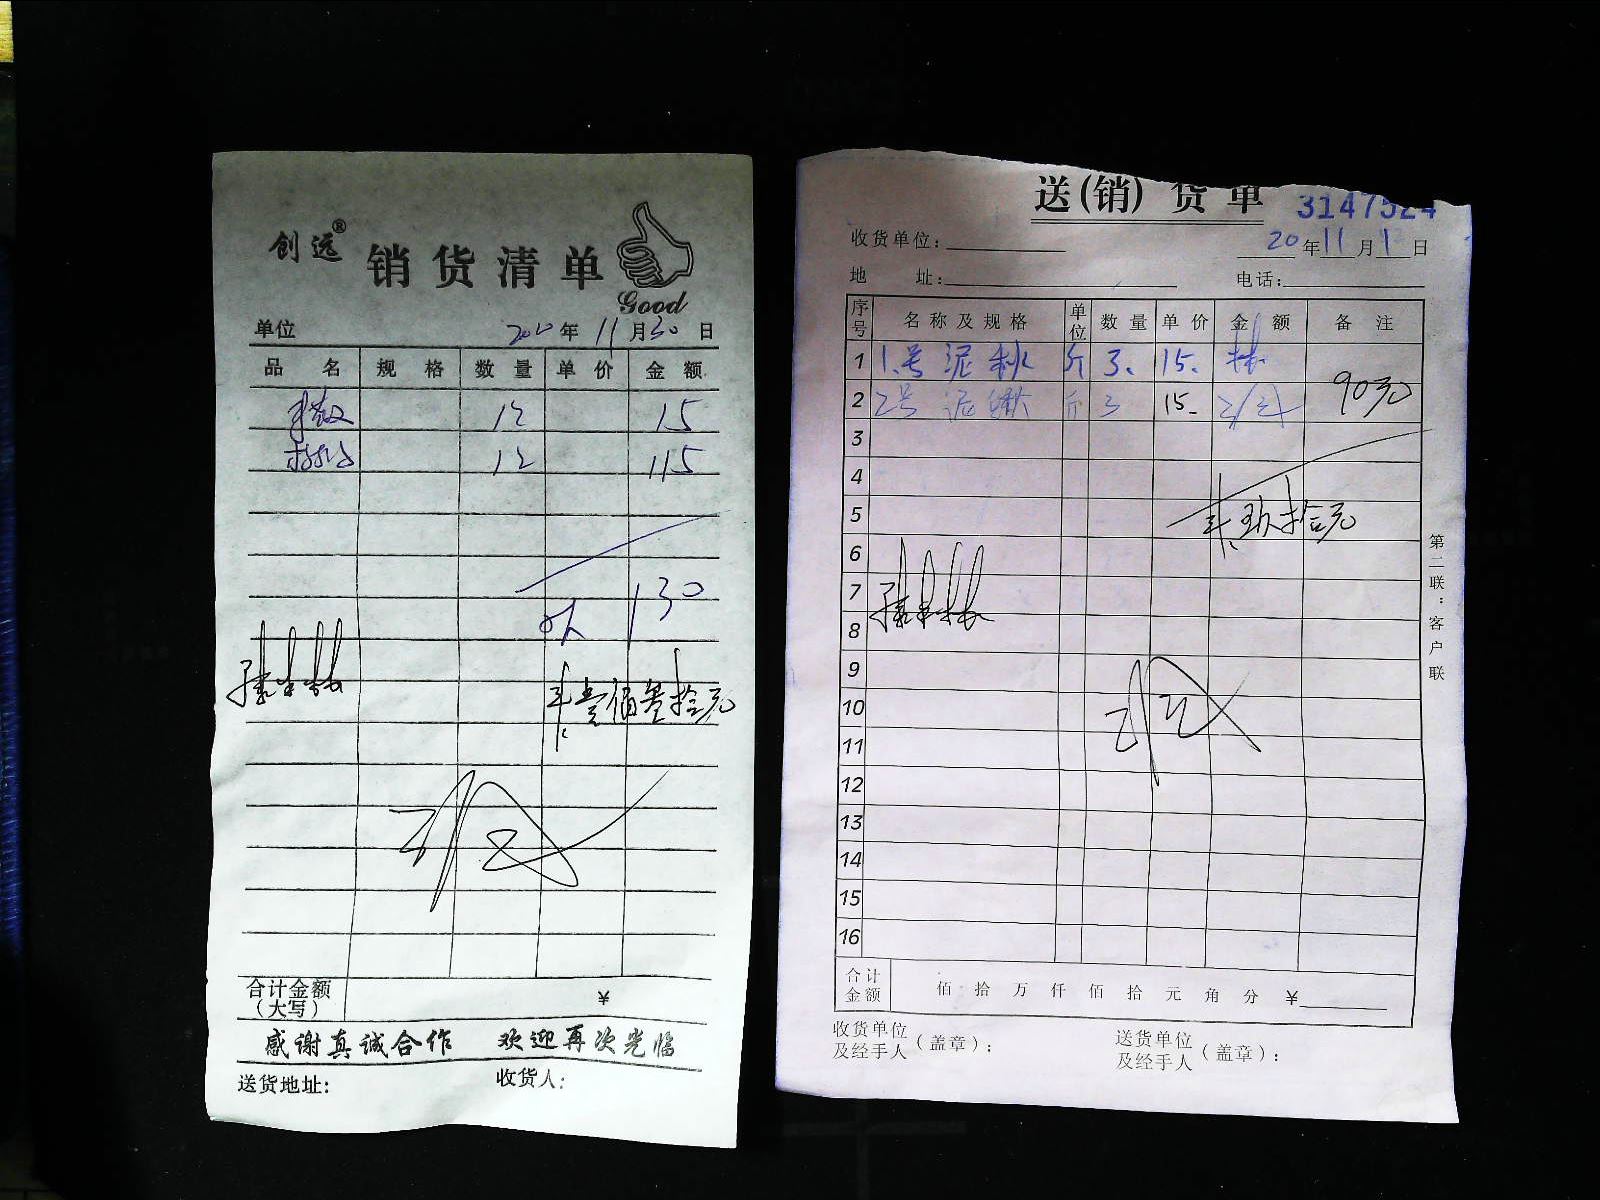 创远® 销货清单
Good
单位 2020年11月30日
品名 规格 数量 单价 金额
12 15
12 115
130
壹佰叁拾元
合计金额
(大写) ¥
感谢真诚合作 欢迎再次光临
送货地址: 收货人:
送(销)货单
3147524
收货单位: 20年11月1日
地址: 电话:
序号 名称及规格 单位 数量 单价 金额 备注
1 1号泥秋 斤 3. 15.
2 2号泥鳅 斤 3 15. 90元
3
4
5 玖拾元
6
7
8
9
10
11
12
13
14
15
16
合计金额 佰拾万仟佰拾元角分 ¥
收货单位及经手人(盖章): 送货单位及经手人(盖章):
第二联:客户联